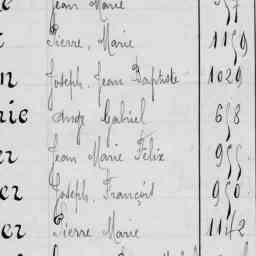 Jean Marie
Pierre, Marie 1159
n Joseph, Jean Baptiste 1029
rie Ange Gabriel 658
er Jean Marie Félix 955
er Joseph, François 950
er Pierre Marie 1142